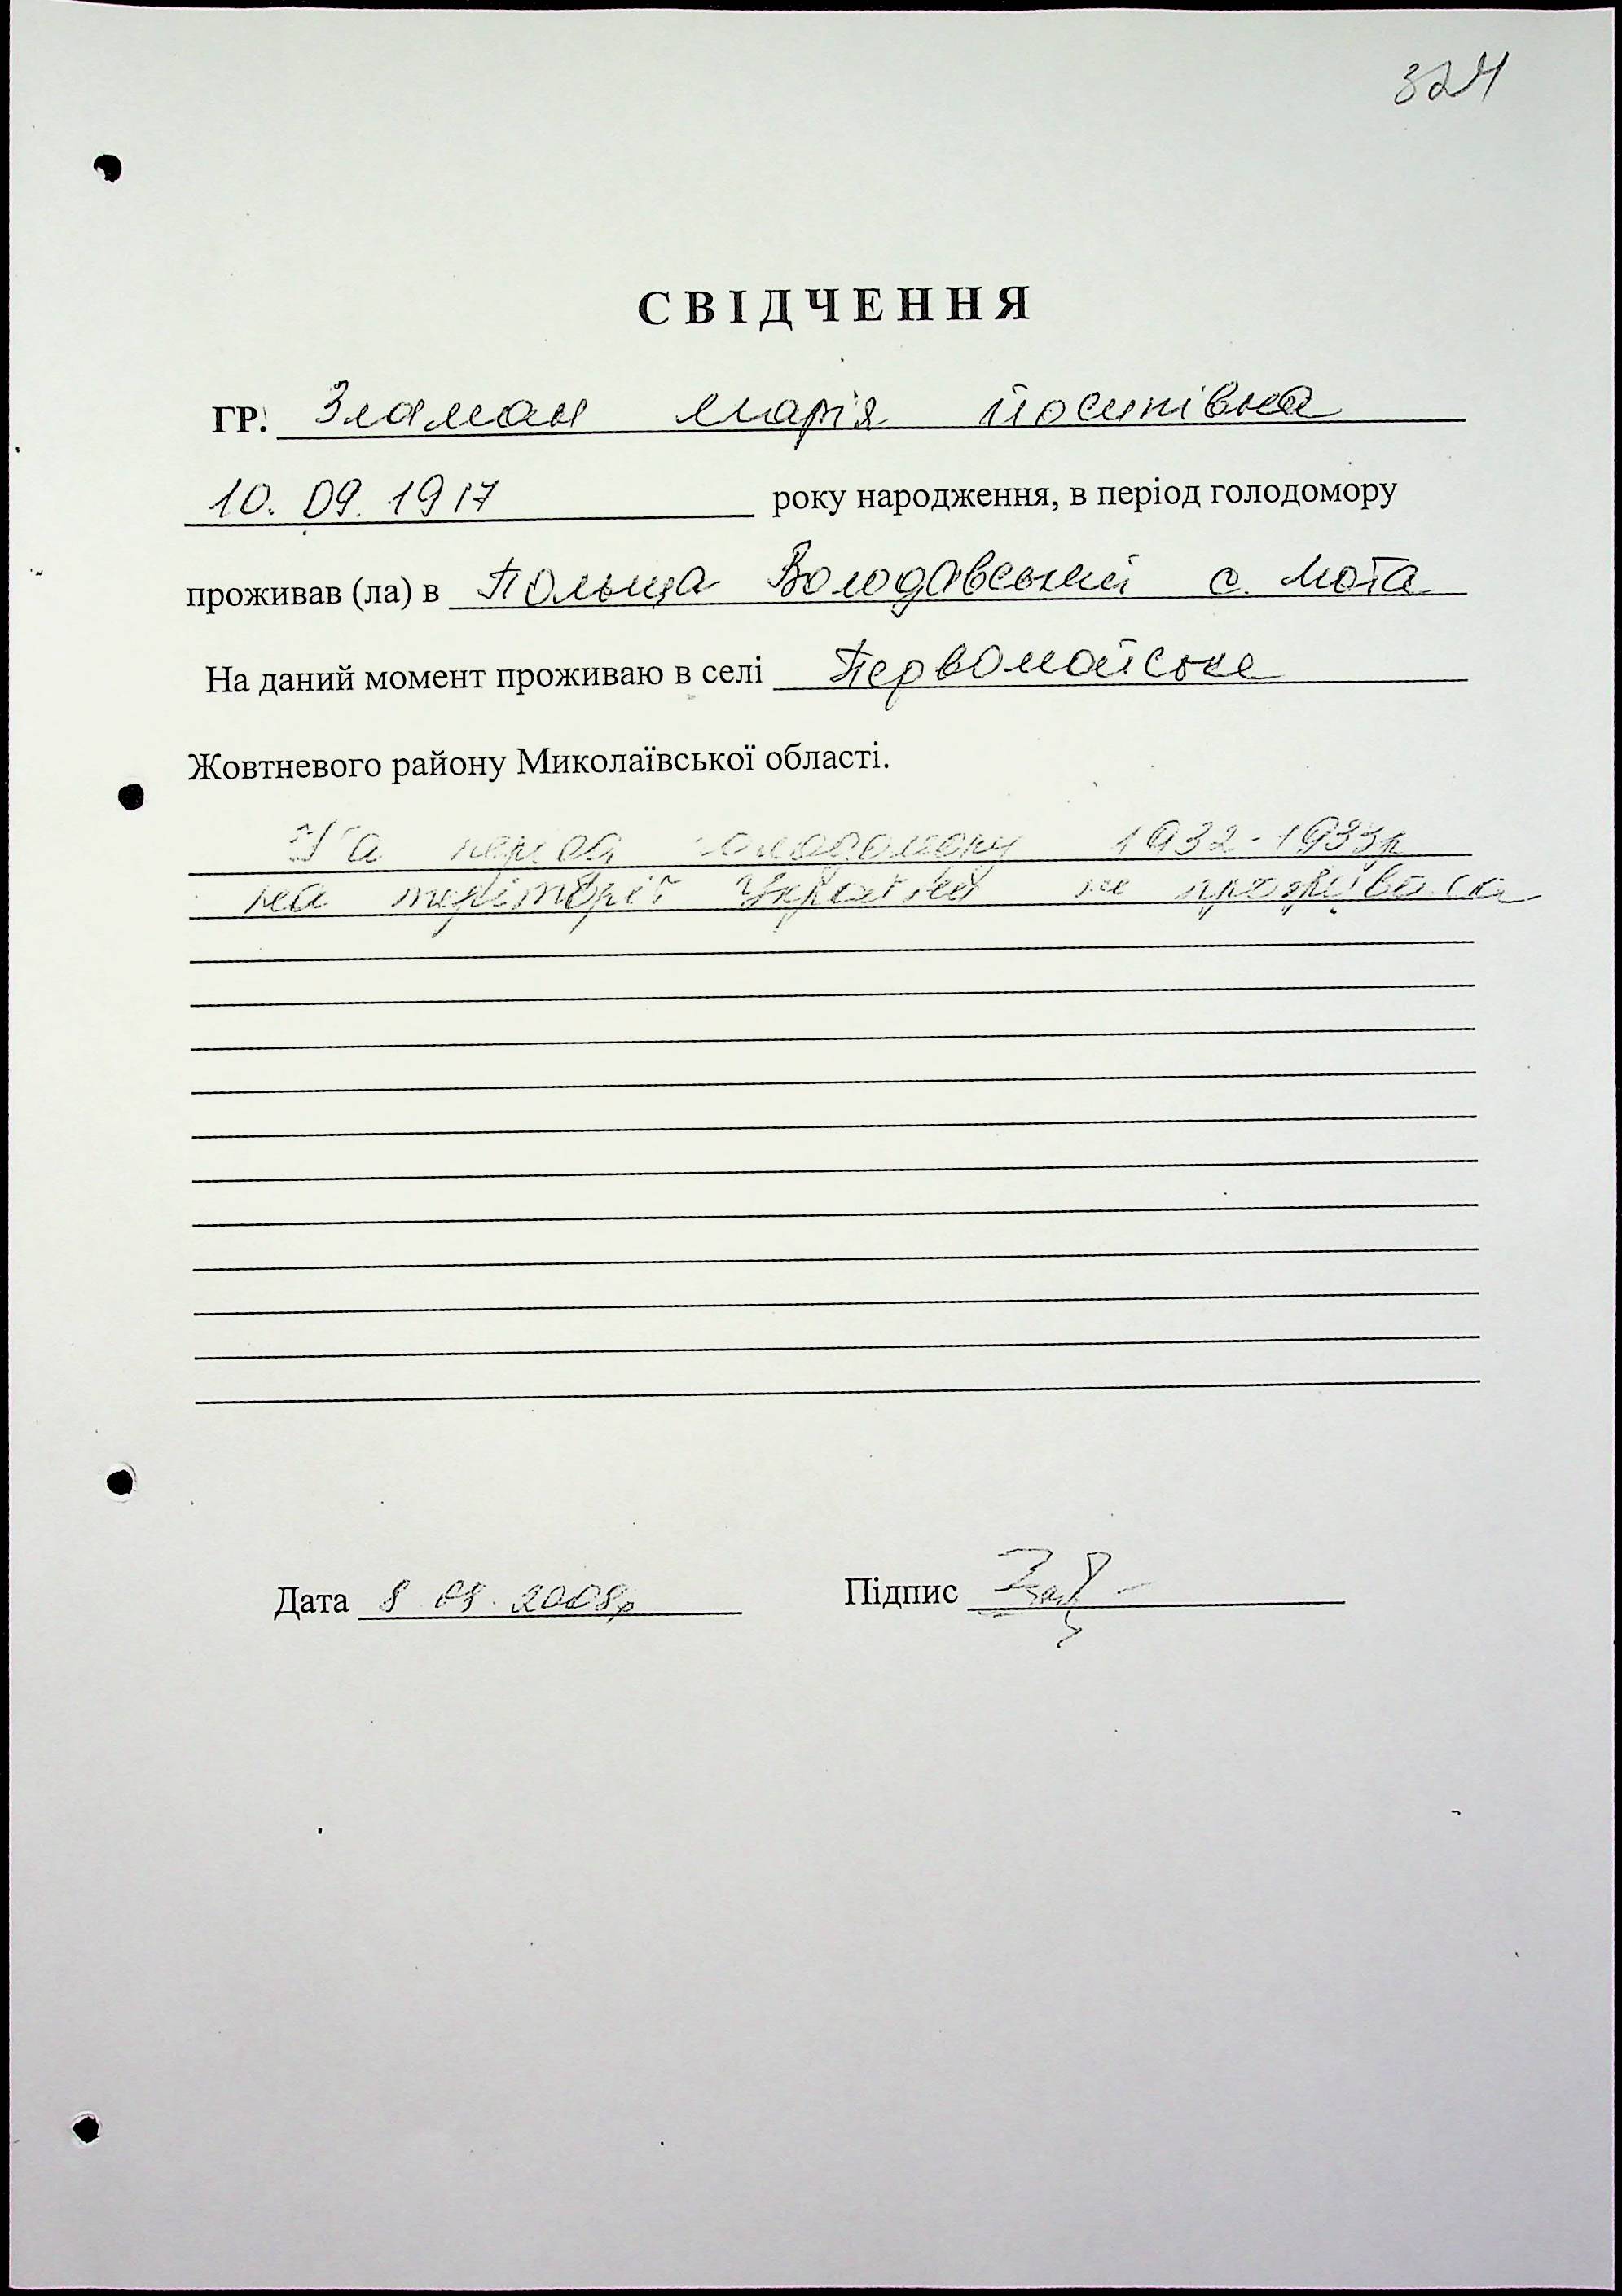 324
СВІДЧЕННЯ
ГР. Зламан Марія Йосипівна
10. 09. 1917 року народження, в період голодомору
проживав (ла) в Польща Володавський с. Мота
На даний момент проживаю в селі Первомайське
Жовтневого району Миколаївської області.
На період голодомору 1932-1933р
на теріторії України не проживала
Дата 8 09. 2008р Підпис